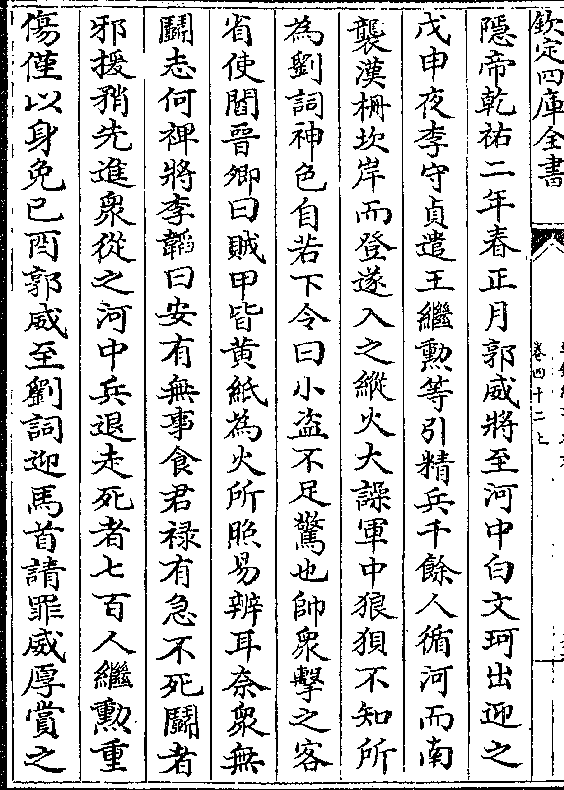 欽定四庫全書
卷四十二上
隱帝乾祐二年春正月郭威將至河中白文珂出迎之
戊申夜李守貞遣王繼勲等引精兵千餘人循河而南
襲漢柵坎岸而登遂入之縱火大譟軍中狼狽不知所
為劉詞神色自若下令曰小盗不足驚也帥衆擊之客
省使閻晉卿曰賊甲皆黄紙為火所照易辨耳奈衆無
鬭志何禆將李韜曰安有無事食君禄有急不死鬭者
邪援矟先進衆從之河中兵退走死者七百人繼勲重
傷僅以身免已酉郭威至劉詞迎馬首請罪威厚賞之